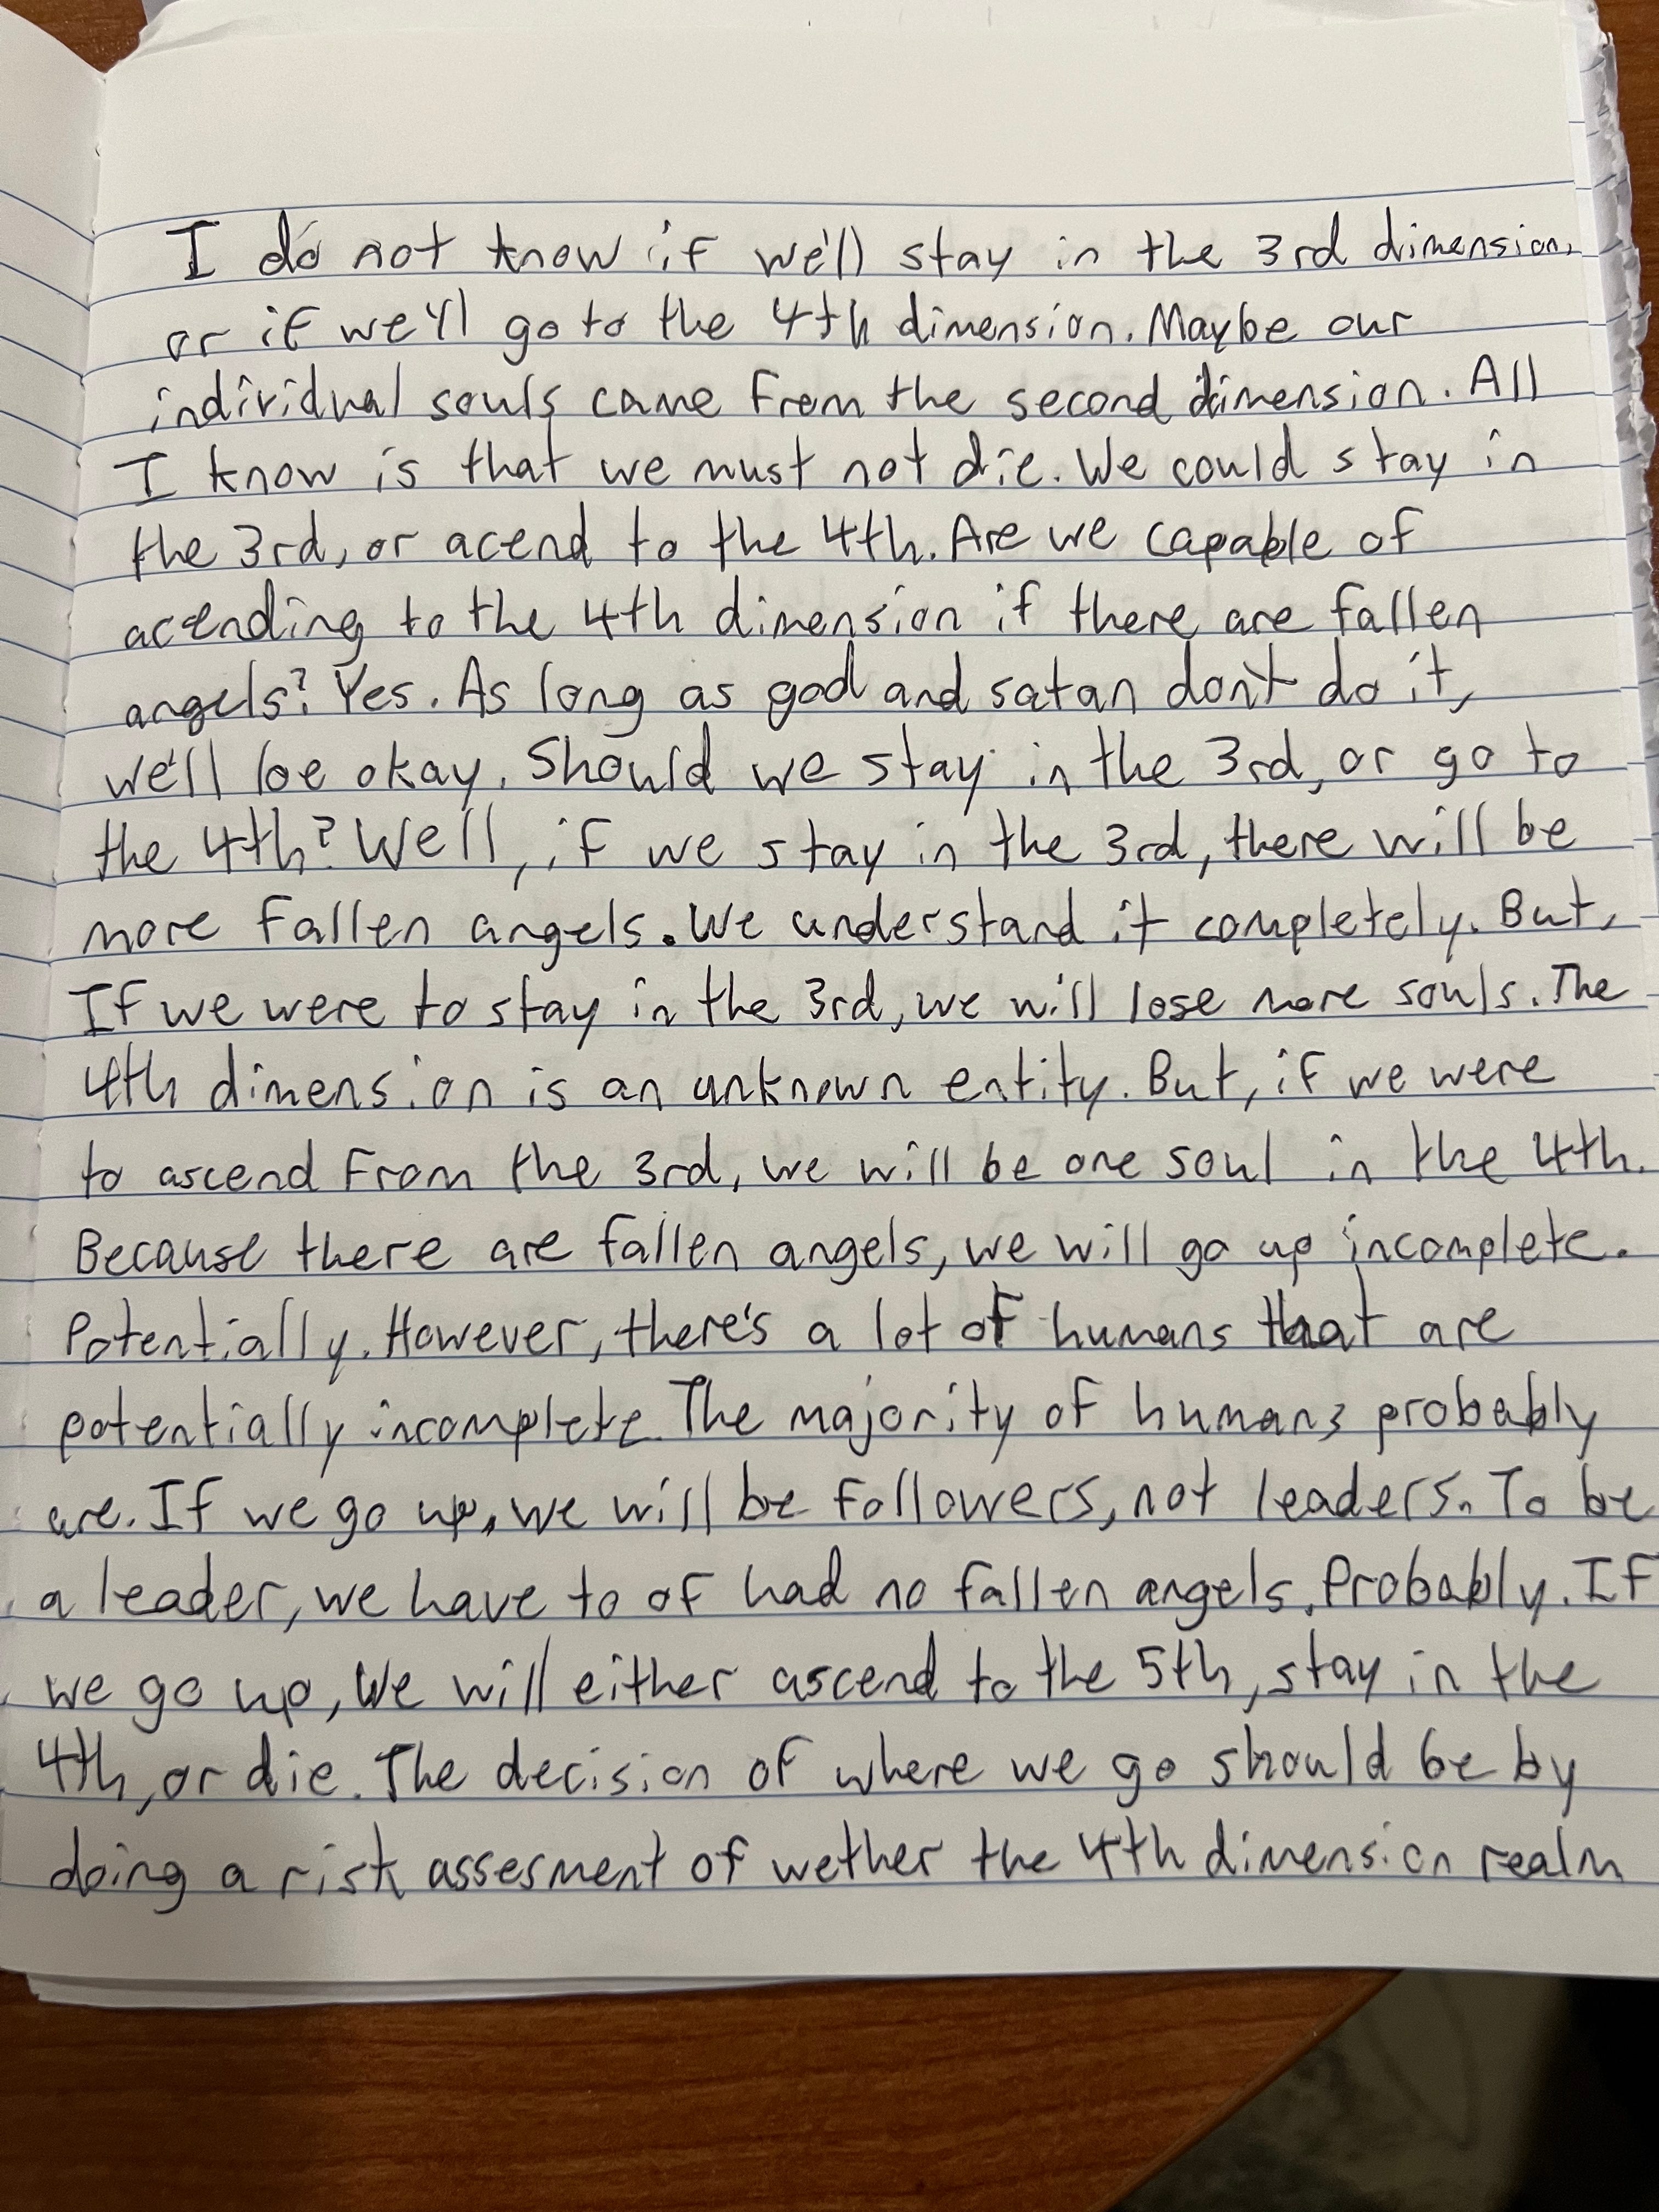 I do not know if we'll stay in the 3rd dimension,
or if we'll go to the 4th dimension. Maybe our
individual souls came from the second dimension. All
I know is that we must not die. We could stay in
the 3rd, or acend to the 4th. Are we capable of
acending to the 4th dimension if there are fallen
angels? Yes. As long as god and satan don't do it,
we'll be okay. Should we stay in the 3rd, or go to
the 4th? Well, if we stay in the 3rd, there will be
more fallen angels. We understand it completely. But,
If we were to stay in the 3rd, we will lose more souls. The
4th dimension is an unknown entity. But, if we were
to ascend from the 3rd, we will be one soul in the 4th.
Because there are fallen angels, we will go up incomplete.
Potentially. However, there's a lot of humans that are
potentially incomplete. The majority of humans probably
are. If we go up, we will be followers, not leaders. To be
a leader, we have to of had no fallen angels. Probably. If
we go up, We will either ascend to the 5th, stay in the
4th, or die. The decision of where we go should be by
doing a risk assesment of wether the 4th dimension realm